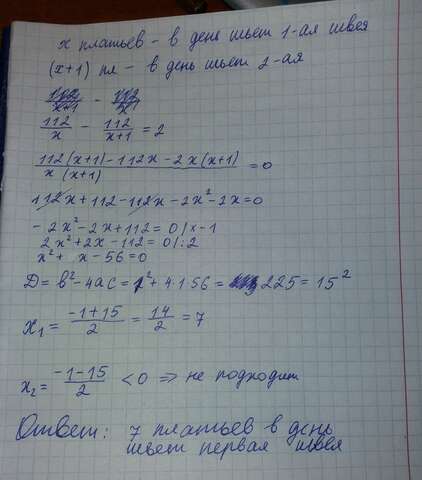 x платьев - в день шьет 1-ая швея
(x+1) пл - в день шьет 2-ая
112/x - 112/(x+1) = 2
(112(x+1) - 112x - 2x(x+1))/(x(x+1)) = 0
112x + 112 - 112x - 2x² - 2x = 0
-2x² - 2x + 112 = 0 | x - 1
2x² + 2x - 112 = 0 | : 2
x² + x - 56 = 0
D = b² - 4ac = 1² + 4·1·56 = 225 = 15²
x₁ = (-1+15)/2 = 14/2 = 7
x₂ = (-1-15)/2 < 0 => не подходит
Ответ: 7 платьев в день
шьет первая швея